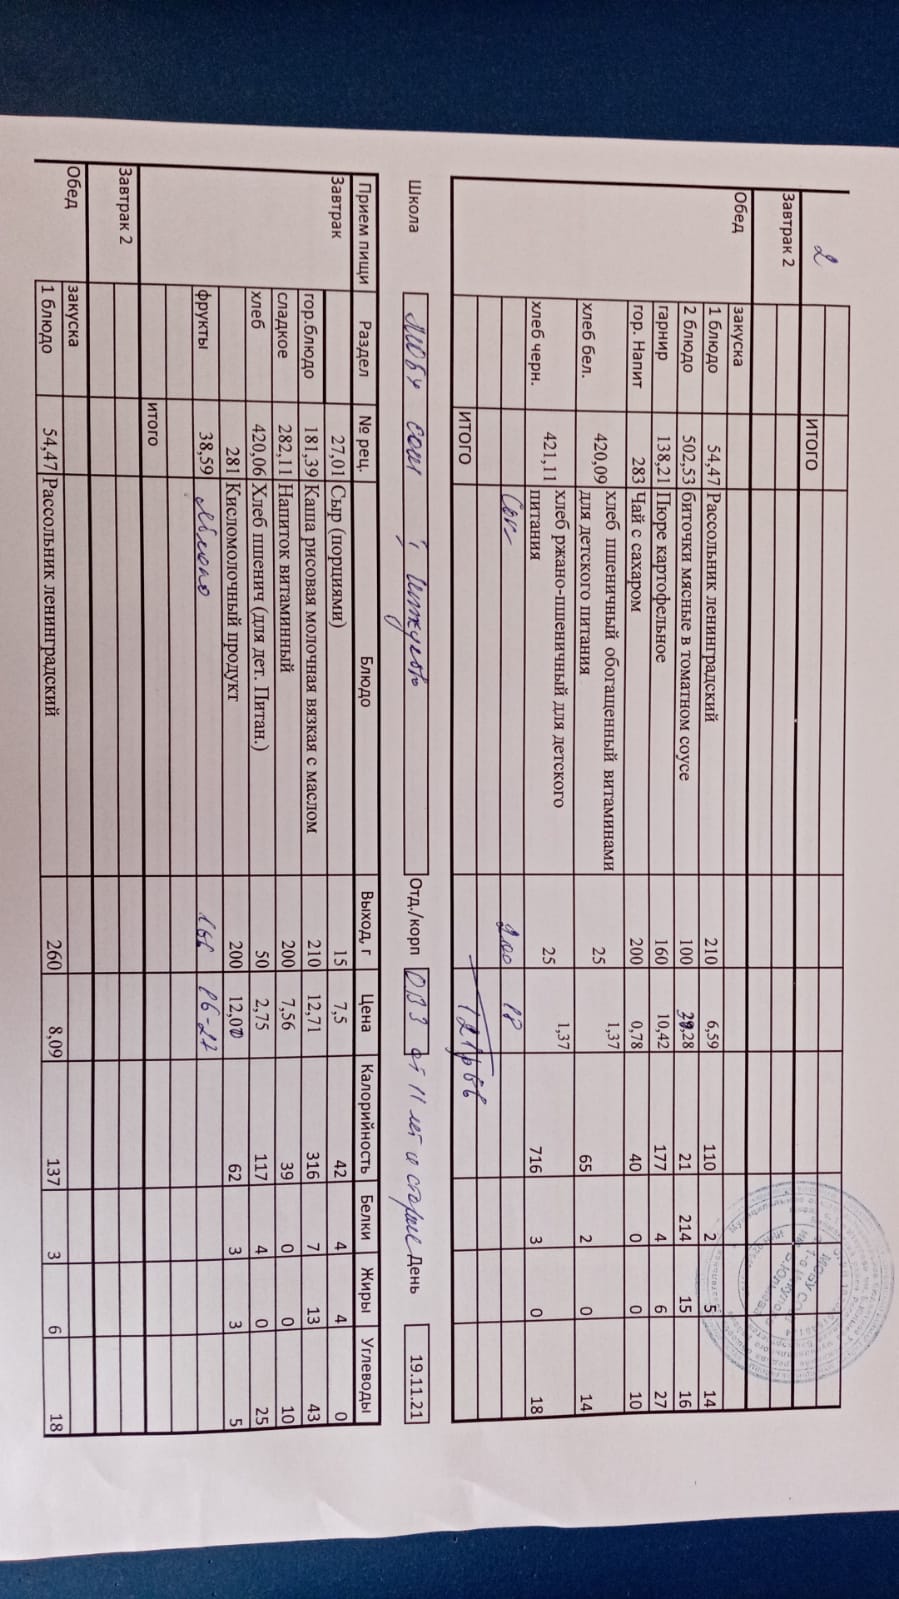 2
ИТОГО
Завтрак 2
Обед
закуска
1 блюдо 54,47 Рассольник ленинградский 210 6,59 110 2 5 14
2 блюдо 502,53 биточки мясные в томатном соусе 100 28 21 214 15 16
гарнир 138,21 Пюре картофельное 160 10,42 177 4 6 27
гор. Напит 283 Чай с сахаром 200 0,78 40 0 0 10
хлеб пшеничный обогащенный витаминами
хлеб бел. 420,09 для детского питания 25 1,37 65 2 0 14
хлеб ржано-пшеничный для детского
хлеб черн. 421,11 питания 25 1,37 716 3 0 18
Сок 200 18
ИТОГО
Школа Отд./корп ОВЗ от 11 лет и старше День 19.11.21
Прием пищи Раздел № рец. Блюдо Выход, г Цена Калорийность Белки Жиры Углеводы
Завтрак 27,01 Сыр (порциями) 15 7,5 42 4 4 0
гор.блюдо 181,39 Каша рисовая молочная вязкая с маслом 210 12,71 316 7 13 43
сладкое 282,11 Напиток витаминный 200 7,56 39 0 0 10
хлеб 420,06 Хлеб пшенич (для дет. Питан.) 50 2,75 117 4 0 25
281 Кисломолочный продукт 200 12,00 62 3 3 5
фрукты 38,59 яблоко
итого
Завтрак 2
Обед закуска
1 блюдо 54,47 Рассольник ленинградский 260 8,09 137 3 6 18